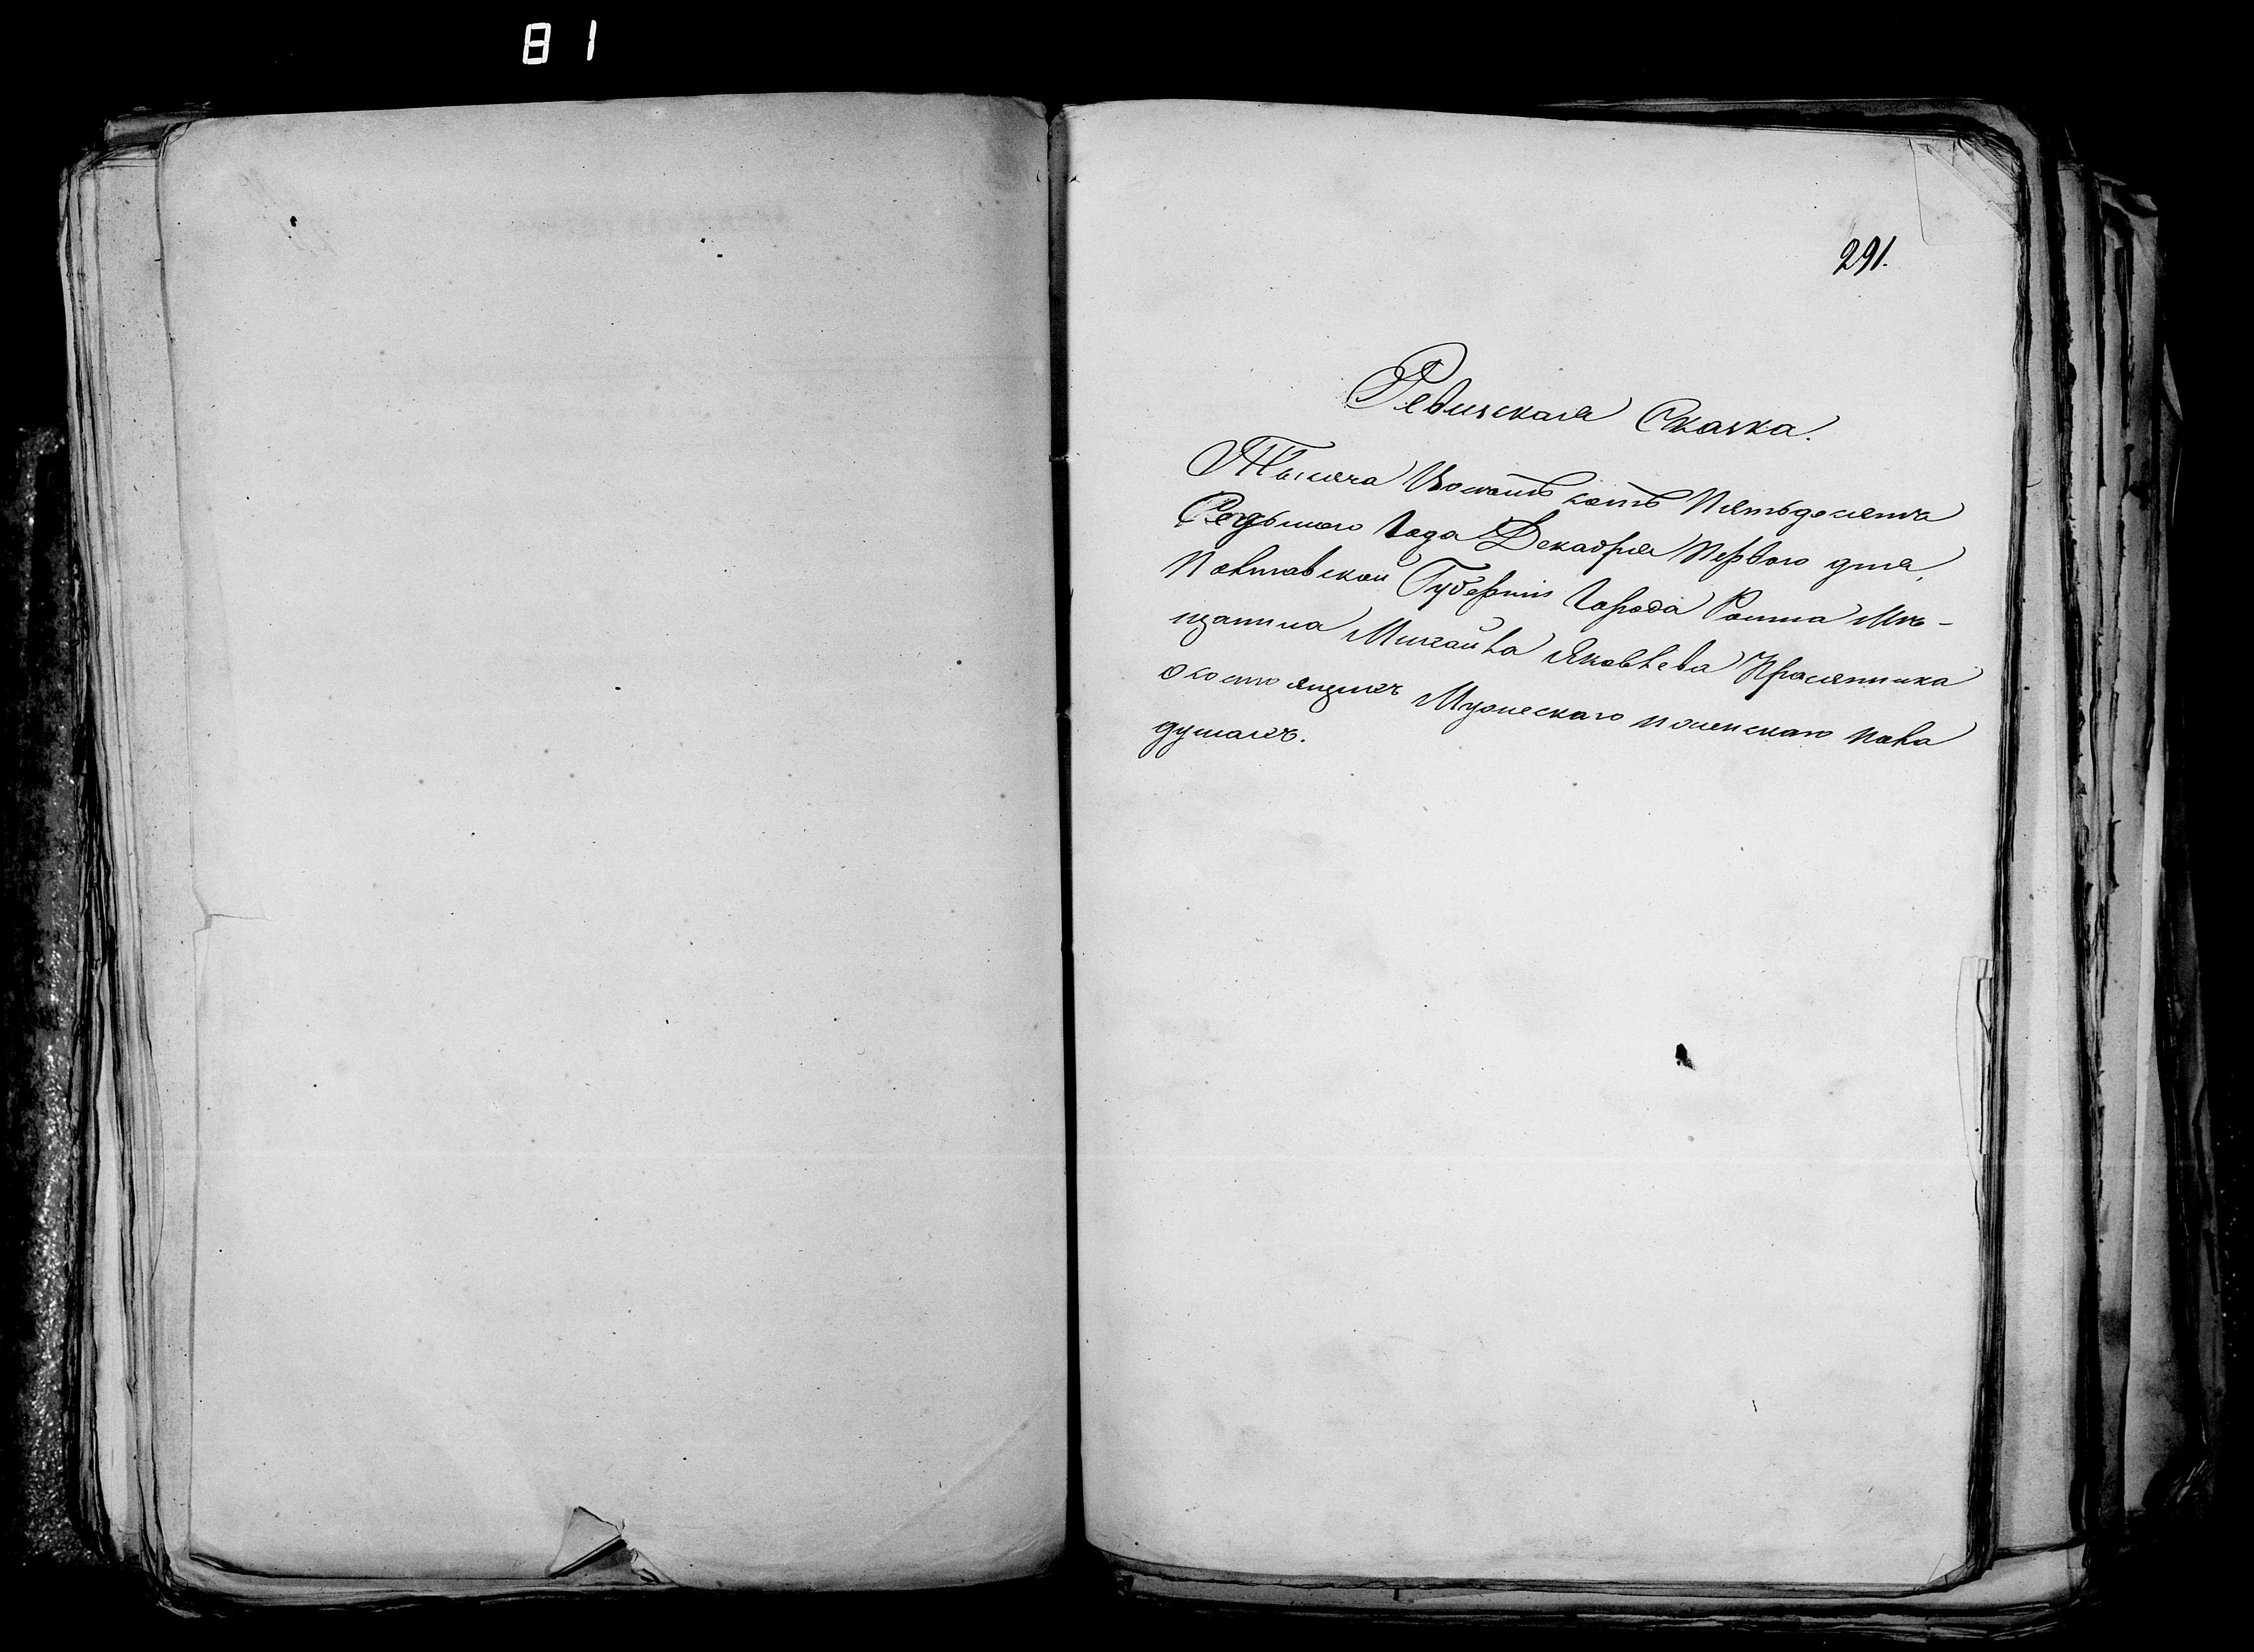 81
291.
Ревизская Сказка.
Тысяча Восемь сотъ Пятьдесятъ
Седьмого Года Декабря Первого дня,
Полтавской Губерніи Города Ромна Мѣ-
щанина Михайла Яковлева Красянника
о состоящихъ Мужескаго и женскаго пола
душахъ.